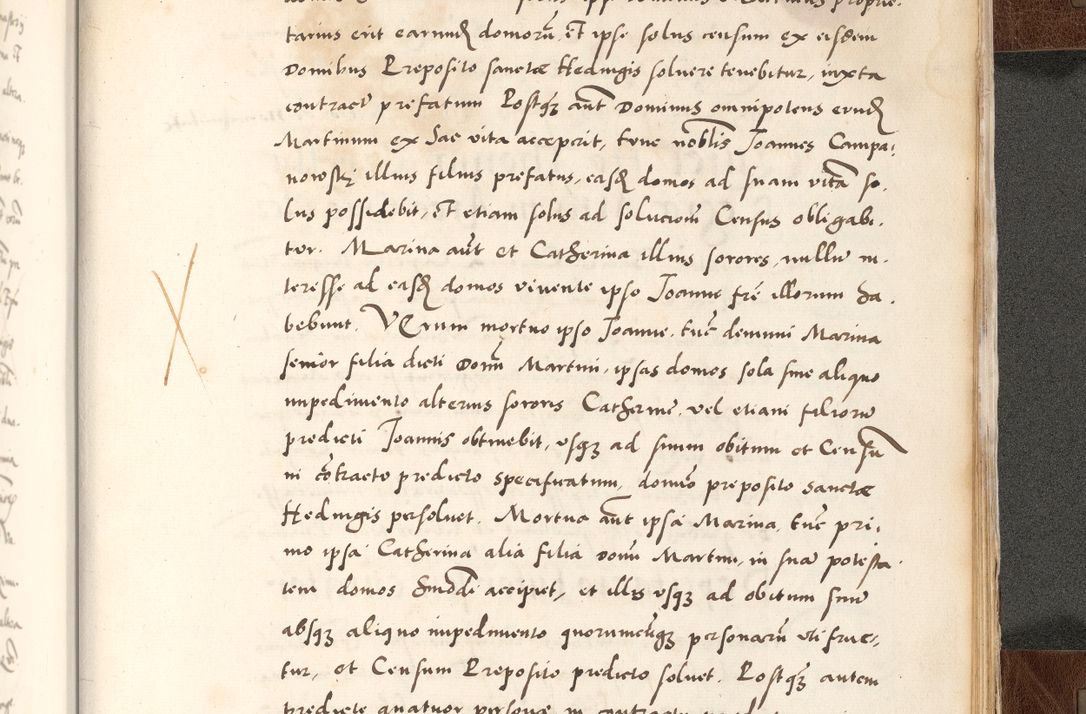 tarius erit earundẽ domorũ, et ipse solus censum ex eisdem
Domibus Preposito sanctæ Hedvigis soluere tenebitur, iuxta
contractũ prefatum Postqȝ aũt Dominus omnipotens eundẽ
Martinum ex hac vita acceperit, tunc nobĩlis Joannes Campa-
nowskj illius filius prefatus, easdẽ domos ad suam vitã so-
lus possidebit, et etiam solus ad solucionẽ Census obligabi-
tur. Marina aũt et Catherina illius sorores, nullũ in-
teresse ad easdẽ domos vivente ipso Joanne frẽ illorum ha-
bebunt. Verum mortuo ipso Joanne, tunc demum Marina
senior filia dicti Domĩ Martini, ipsas domos sola sine aliquo
impedimento alterius sororis Catherinæ, vel etiam filiorũ
predicti Joannis obtinebit, usqȝ ad suum obitum et Censũ
in cõtractu predicto specificatum, domĩno preposito sanctæ
Hedvigis persoluet. Mortua aũt ipsa Marina, tunc pri-
mo ipsa Catherina alia filia Domĩ Martini, in suã potesta-
tem domos hmõdi accipiet, et illis usqȝ ad obitum suũ
absqȝ aliquo impedimento quorumcũqȝ personarũ uti frue-
tur, et Censum Preposito predicto soluet. Postqȝ autem
predicte quatuor personæ in contractu